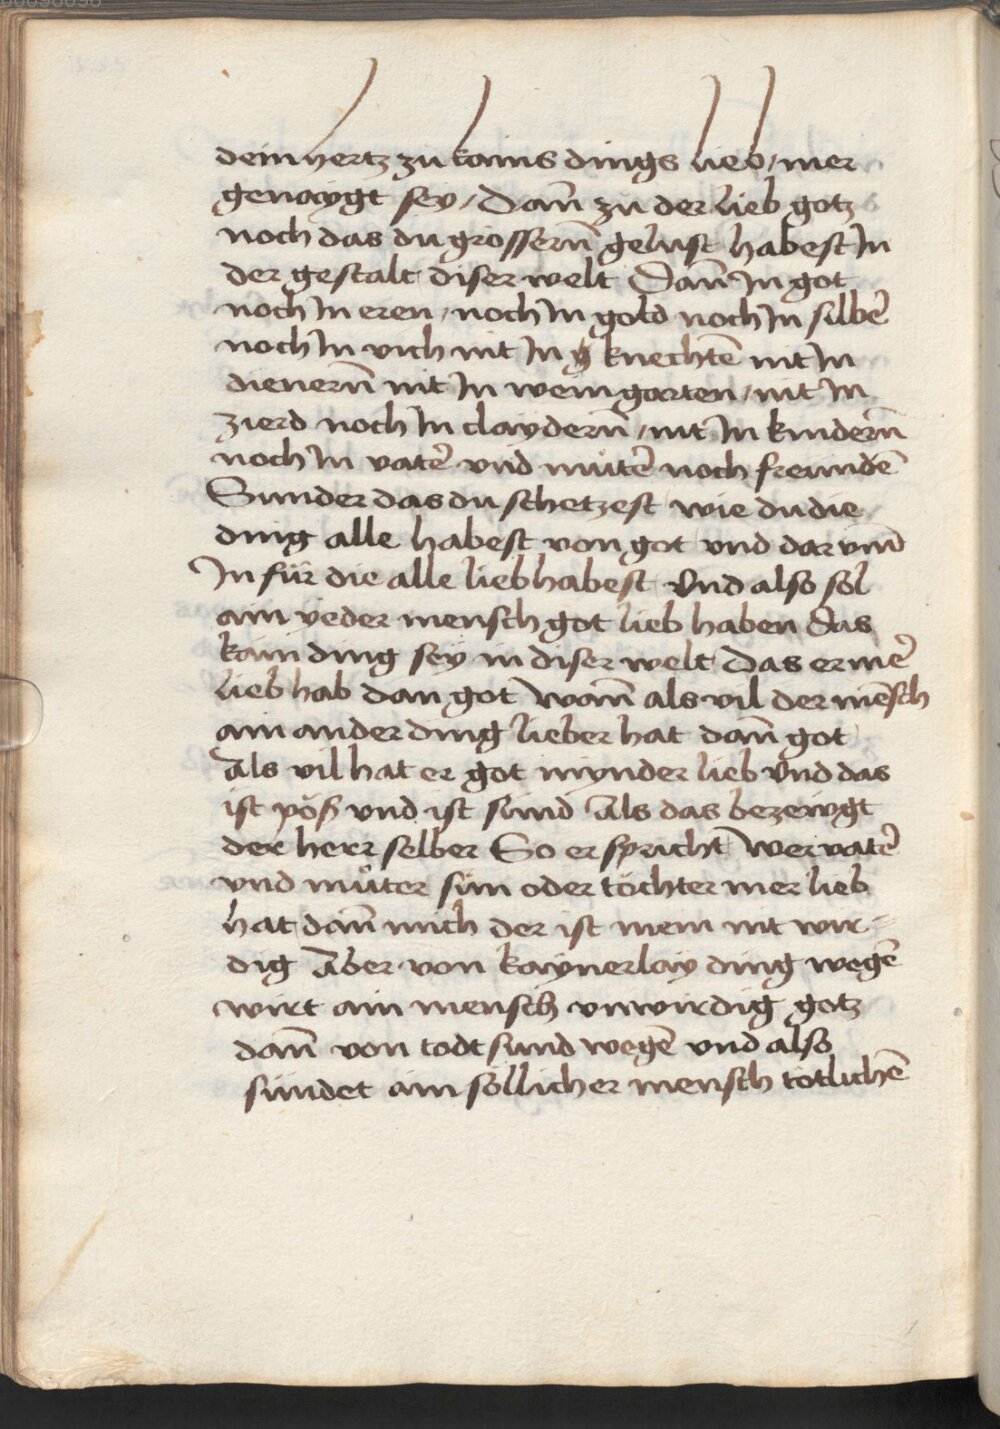 dein hertz zu kains dings lieb / mer
genaygt sey / Dan̄ zu̇ der lieb gotz
noch das du grossern̄ gelust habest In
der gestalt diser welt Dan̄ In got
noch In eren / noch In gold noch In silbe᷑
noch In vich nit In knechtē nit In
dienern̄ nit In weingarten / nit In
zierd noch In claydern̄ / nit In kindern̄
noch In vate᷑ vnd mu̇te᷑ noch freundē
Sunder das du schetzest wie du die
ding alle habest von got vnd dar vm̄
In für die alle lieb habest Vnd also sol
ain yeder mensch got lieb haben Das
kain ding sey in diser welt Das er me᷑
lieb hab dan got Wan̄ als vil der mēsch
ain ander ding lieber hat dan̄ got
Als vil hat er got mynder lieb Vnd das
ist pöß vnd ist sünd Als das bezewgt
der herr selber So er spricht Wer vate᷑
vnd mu̇ter sün oder töchter mer lieb
hat dan̄ mich der ist mein nit wir-
dig Aber von kaynerlay ding wegē
wirt ain mensch vnwirdig gotz
dan̄ von todtsünd wegē vnd also
sündet ain söllicher mensch tötlichē